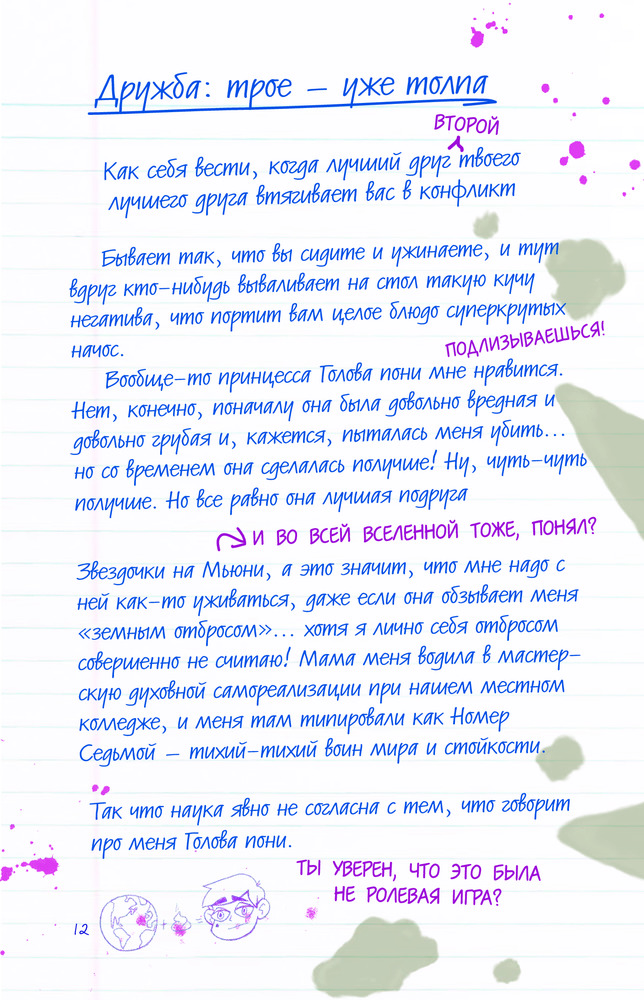 Дружба: трое – уже толпа
ВТОРОЙ
Как себя вести, когда лучший друг твоего
лучшего друга втягивает вас в конфликт
Бывает так, что вы сидите и ужинаете, и тут
вдруг кто-нибудь вываливает на стол такую кучу
негатива, что портит вам целое блюдо суперкрутых
начос.
ПОДЛИЗЫВАЕШЬСЯ!
Вообще-то принцесса Голова пони мне нравится.
Нет, конечно, поначалу она была довольно вредная и
довольно грубая и, кажется, пыталась меня убить...
но со временем она сделалась получше! Ну, чуть-чуть
получше. Но все равно она лучшая подруга
И ВО ВСЕЙ ВСЕЛЕННОЙ ТОЖЕ, ПОНЯЛ?
Звездочки на Мьюни, а это значит, что мне надо с
ней как-то уживаться, даже если она обзывает меня
«земным отбросом»... хотя я лично себя отбросом
совершенно не считаю! Мама меня водила в мастер-
скую духовной самореализации при нашем местном
колледже, и меня там типировали как Номер
Седьмой – тихий-тихий воин мира и стойкости.
Так что наука явно не согласна с тем, что говорит
про меня Голова пони.
ТЫ УВЕРЕН, ЧТО ЭТО БЫЛА
НЕ РОЛЕВАЯ ИГРА?
12